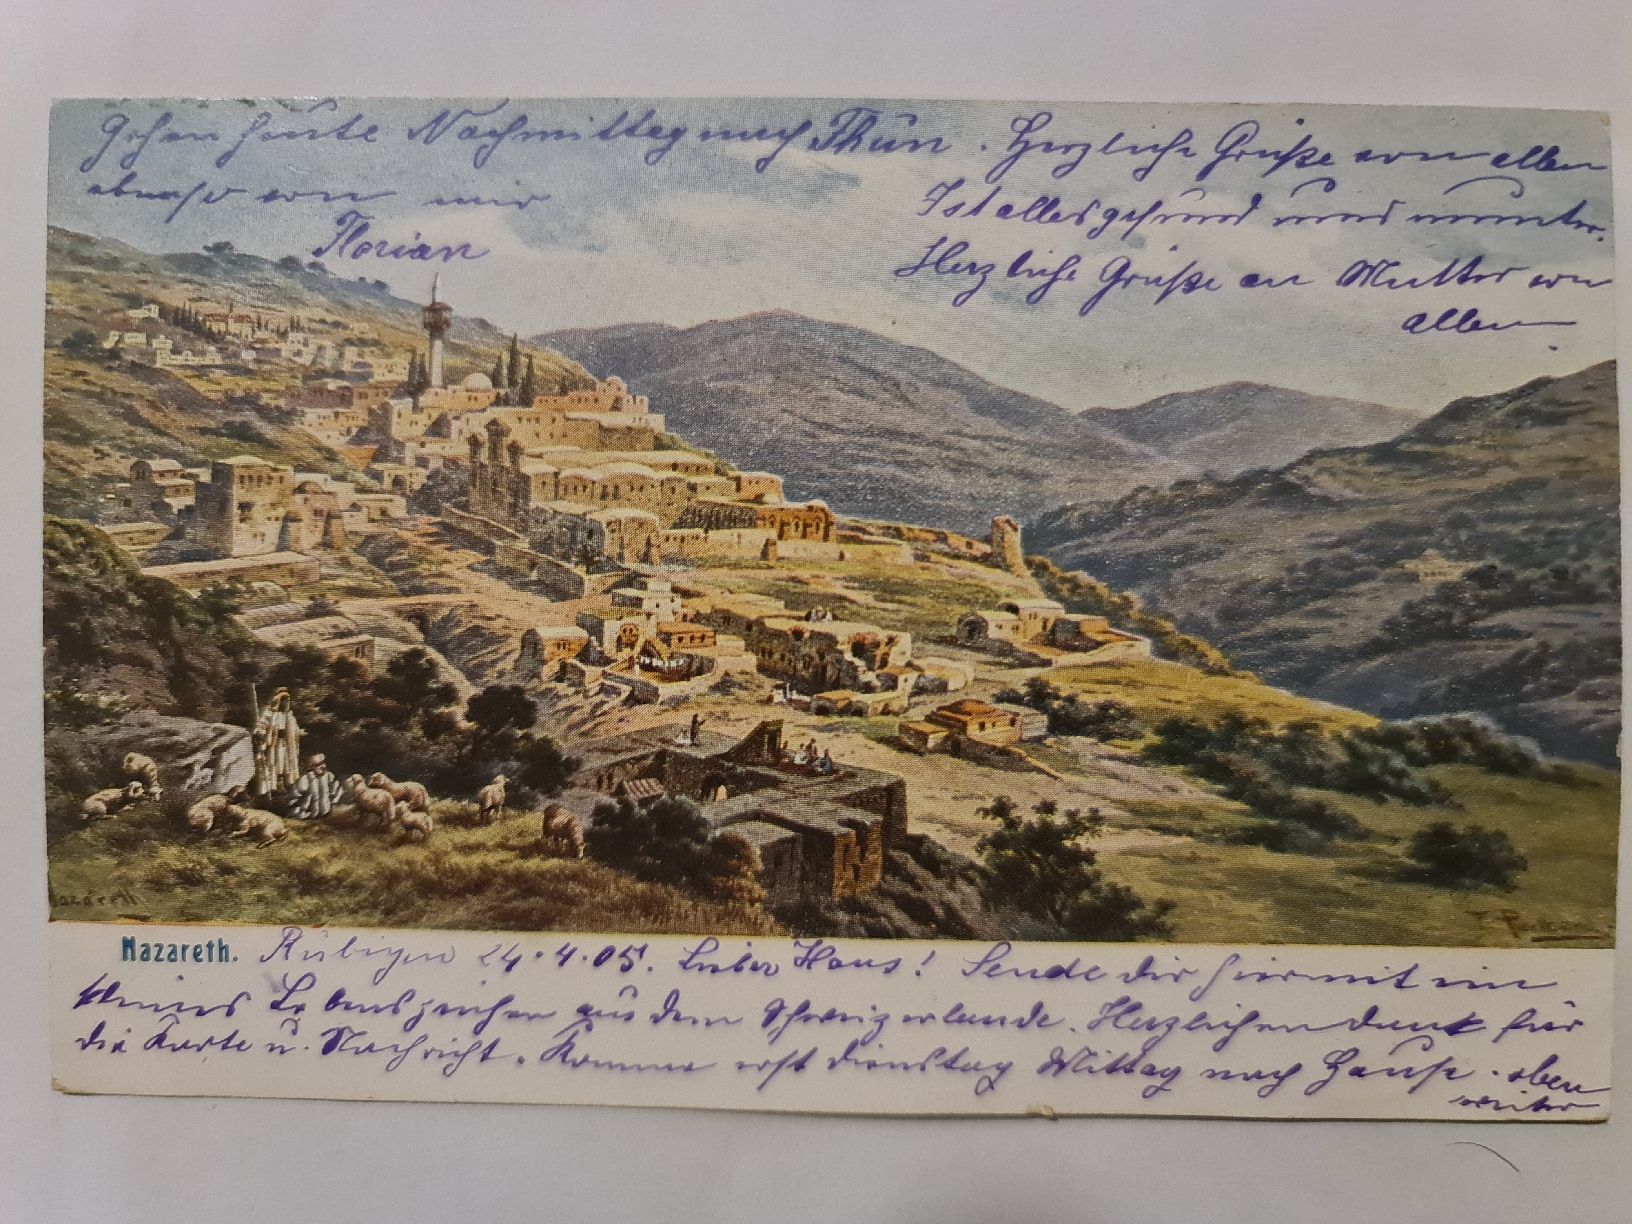 Gehen heute Nachmittag nach Thun. Herzliche Grüße von allen
ebenso von mir
Florian
Ist alles gesund und munter.
Herzliche Grüße an Mutter von
allen
Nazareth.
Rubigen 24.4.05. Lieber Hans! Sende dir hiermit ein
kleines Lebenszeichen aus dem Schweizerlande. Herzlichen dank für
die Karte u. Nachricht. Komme erst Dienstag Mittag nach Hause. oben
weiter